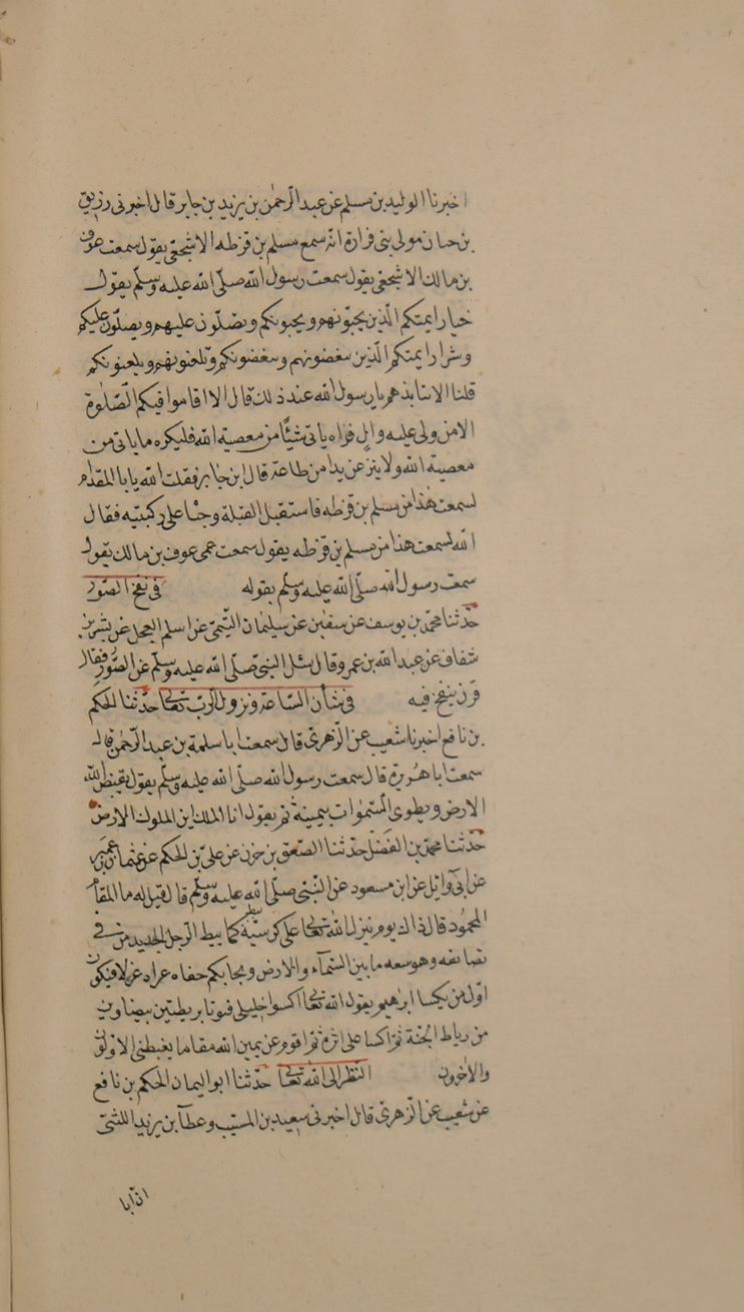 اخبرنا الوليد بن مسلم عن عبد الرحمٰن بن يزيد بن جابر قال اخبرنى رزيق
بن حيان مولى بنى فزارة انه سمع مسلم بن قرظه الاشجعى يقول سمعت عوف
بن مالك الاشجعى يقول سمعت رسول الله صلّى الله عليه وسلّم يقول
خيار ايمتكم الّذين يحبّونهم ويحبونكم وتصلّون عليهم ويصلّون عليكم
وشرار ايمتكم الّذين تبغضونهم ويبغضونكم وتلعنونهم ويلعنونكم
قلنا الا ننابذهم يا رسول الله عند ذلك قال لا ما اقاموا فيكم الصّلوة
الا من ولى عليه وال فراه ياتى شيئًا من معصية الله فليكره ما ياتى من
معصية الله ولا ينزعن يدا من طاعة قال ابن جابر فقلت الله يابا المقدام
لسمعت هٰذا من مسلم بن قرظه فاستقبل القبلة وجثا على ركبتيه فقال
الله لسمعت هذا من مسلم بن قرظه يقول سمعت عمى عوف بن مالك يقول
سمعت رسول الله صلّى الله عليه وسلّم يقوله في نفخ الصّور
حدّثنا محمّد بن يوسف عن سفين عن سليمان التّيمى عن اسلم العجلى عن بشر بن
شغاف عن عبد الله بن عمرو قال سئل النبى صلّى الله عليه وسلّم عن الصّور فقال
قرن ينفخ فيه في شأن السّاعة ونزول الرّب تعالى حدّثنا الحكم
بن نافع اخبرنا شعيب عن الزهرى قال سمعت ابا سلمة بن عبد الرّحمٰن قال
سمعت ابا هريرة قال سمعت رسول الله صلّى الله عليه وسلّم يقول يقبض الله
الارض ويطوى السّموات بيمينه ثم يقول انا الملك اين الملوك الارض
حدّثنا محمّد بن الفضل حدّثنا الصّعق بن حزن عن علىّ بن الحكم عن عثمان بن عمير
عن ابى وايل عن ابن مسعود عن النّبى صلّى الله عليه وسلّم قال قيل له ما المقام
المحمود قال ذاك يوم ينزل الله تعالى على كرسيّه يئط كما يئط الرحل الجديد من
تضايقه وهو سعه ما بين السّمآء والارض ويجابكم حفاه عراه غرلا فيكون
اوّل من يكسا ابرٰهيم يقول الله تعالى اكسوا خليلى فيوتا بريطتين بيضاوين
من رياط الجنة ثم اكسا على اثره ثم اقوم عن يمين الله مقاما يغبطنى الاوّلون
والاخرون النّظر الى الله تعالى حدّثنا ابو اليمان الحكم بن نافع
عن شعيب عن الزهرى قال اخبرنى سعيد بن المسيّب وعطآ بن يزيد اللّيثى
انّ ابا